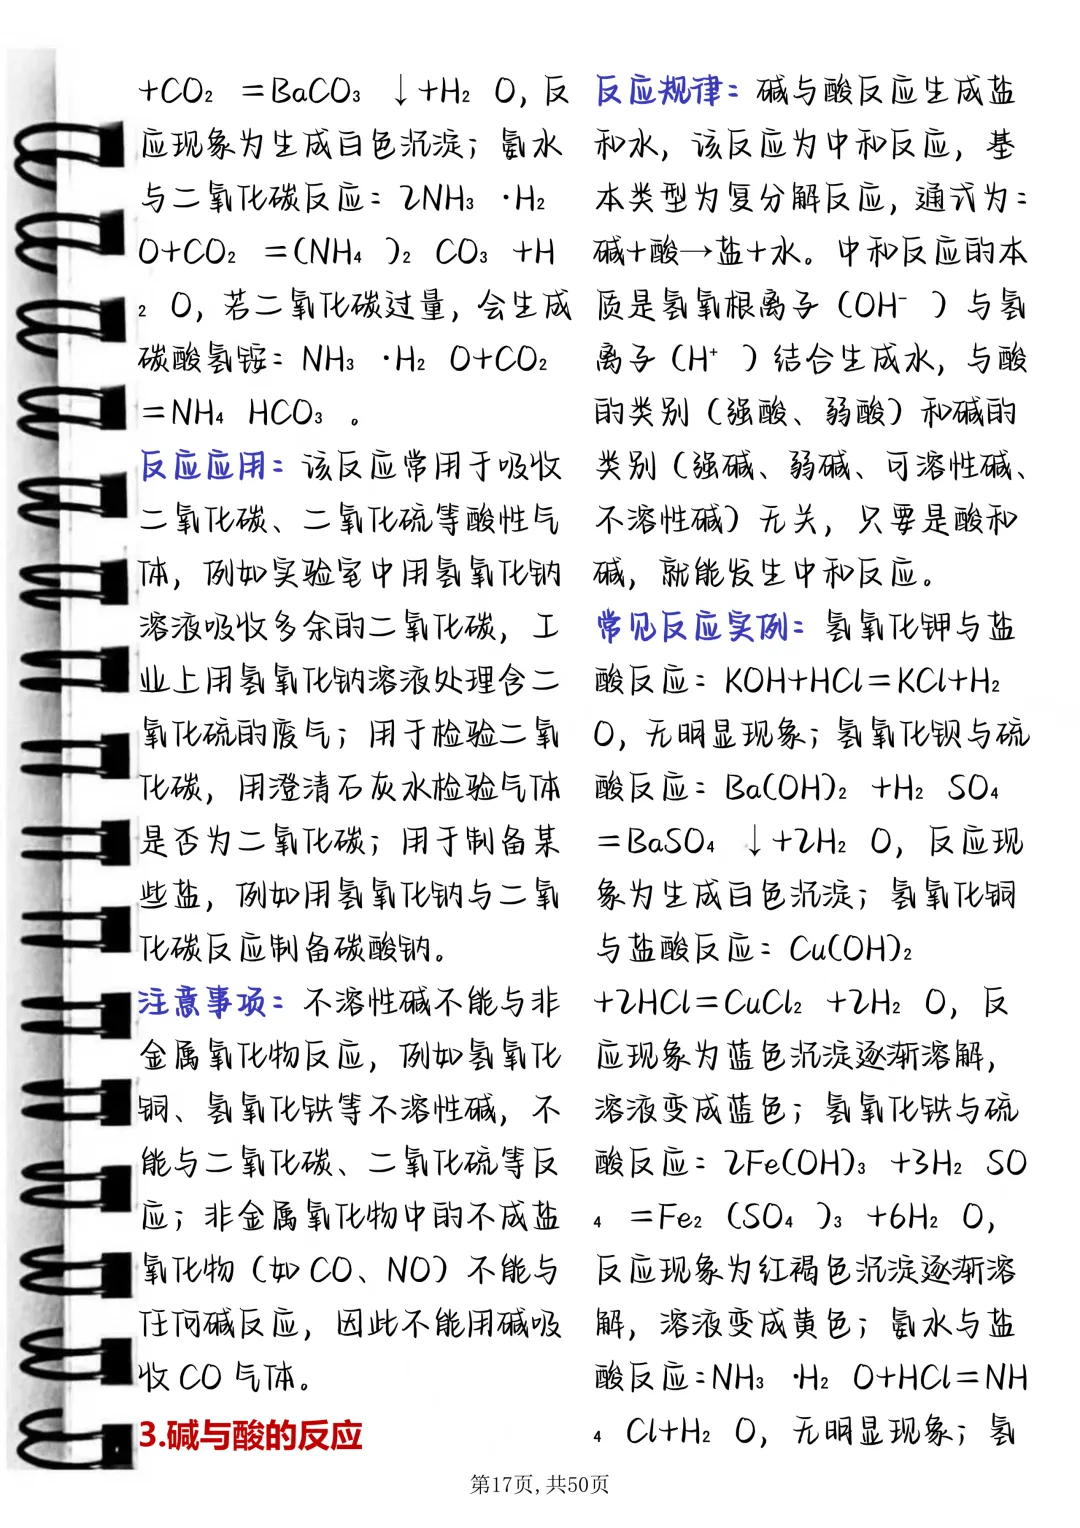 +CO₂ =BaCO₃ ↓+H₂ O，反
应现象为生成白色沉淀；氨水
与二氧化碳反应：2NH₃ ·H₂
O+CO₂ =(NH₄ )₂ CO₃ +H
₂ O，若二氧化碳过量，会生成
碳酸氢铵：NH₃ ·H₂ O+CO₂
=NH₄ HCO₃ 。
反应应用：该反应常用于吸收
二氧化碳、二氧化硫等酸性气
体，例如实验室中用氢氧化钠
溶液吸收多余的二氧化碳，工
业上用氢氧化钠溶液处理含二
氧化硫的废气；用于检验二氧
化碳，用澄清石灰水检验气体
是否为二氧化碳；用于制备某
些盐，例如用氢氧化钠与二氧
化碳反应制备碳酸钠。
注意事项：不溶性碱不能与非
金属氧化物反应，例如氢氧化
铜、氢氧化铁等不溶性碱，不
能与二氧化碳、二氧化硫等反
应；非金属氧化物中的不成盐
氧化物（如 CO、NO）不能与
任何碱反应，因此不能用碱吸
收 CO 气体。
3.碱与酸的反应
反应规律：碱与酸反应生成盐
和水，该反应为中和反应，基
本类型为复分解反应，通式为：
碱+酸→盐+水。中和反应的本
质是氢氧根离子（OH⁻ ）与氢
离子（H⁺ ）结合生成水，与酸
的类别（强酸、弱酸）和碱的
类别（强碱、弱碱、可溶性碱、
不溶性碱）无关，只要是酸和
碱，就能发生中和反应。
常见反应实例：氢氧化钾与盐
酸反应：KOH+HCl=KCl+H₂
O，无明显现象；氢氧化钡与硫
酸反应：Ba(OH)₂ +H₂ SO₄
=BaSO₄ ↓+2H₂ O，反应现
象为生成白色沉淀；氢氧化铜
与盐酸反应：Cu(OH)₂
+2HCl=CuCl₂ +2H₂ O，反
应现象为蓝色沉淀逐渐溶解，
溶液变成蓝色；氢氧化铁与硫
酸反应：2Fe(OH)₃ +3H₂ SO
₄ =Fe₂ (SO₄ )₃ +6H₂ O，
反应现象为红褐色沉淀逐渐溶
解，溶液变成黄色；氨水与盐
酸反应：NH₃ ·H₂ O+HCl=NH
₄ Cl+H₂ O，无明显现象；氢
第17页,共50页